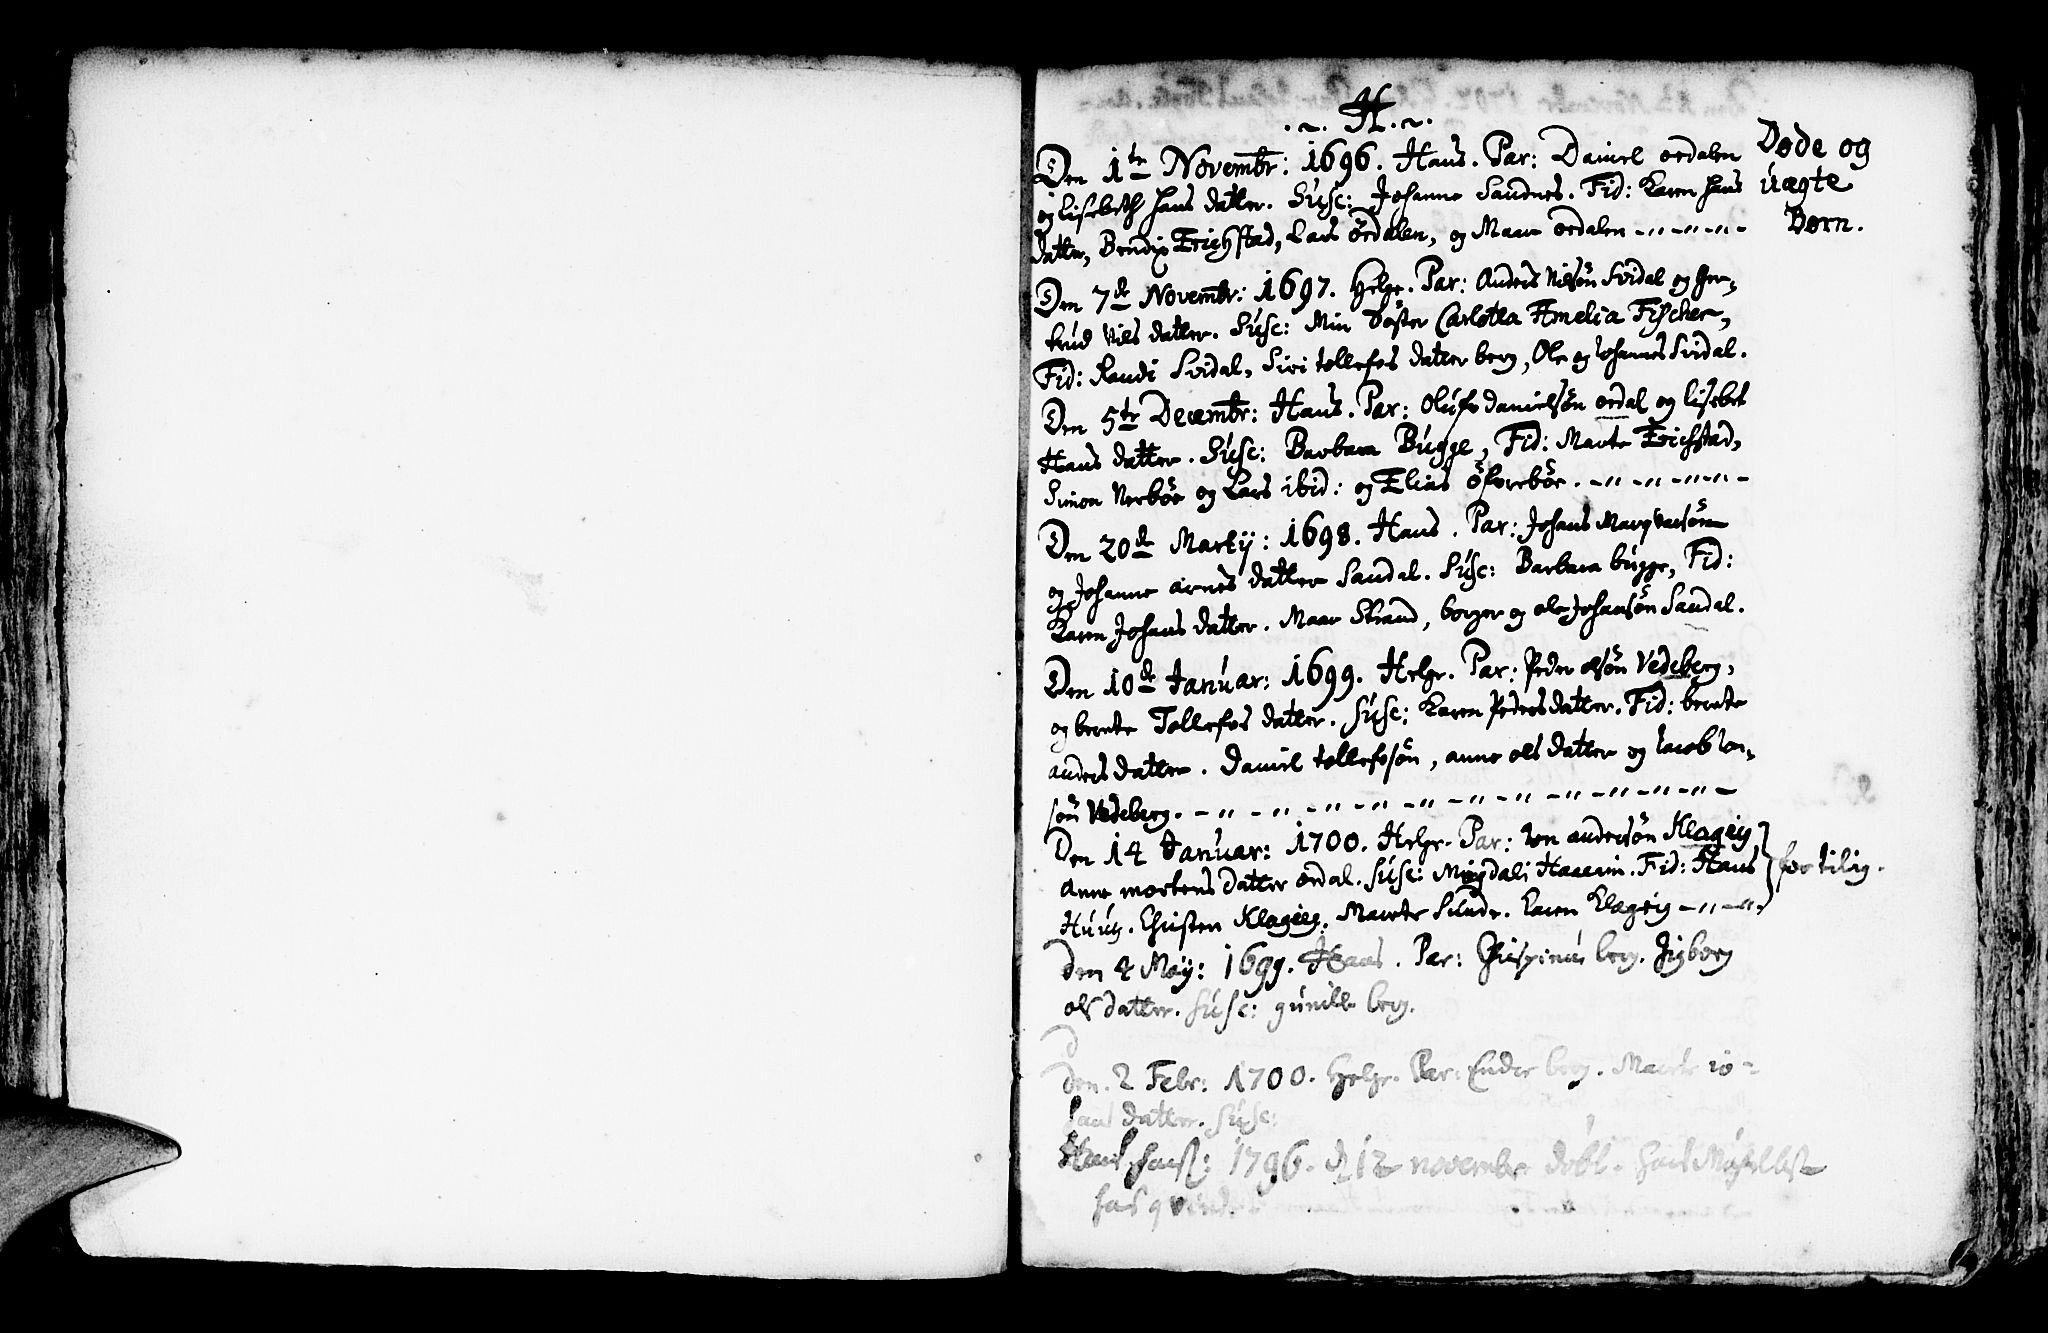 . ~ . H . ~ .
Døde og
uægte
Børn.
Den 1te Novembr: 1696. Hans. Par: Daniel ordalen
og Lisebeth Hans datter. Susc: Johanne Sandnes. Fid: Karen Hans
datter, Bendix Erichstad, Lars ördalen, og Maar ordalen
Den 7de Novembr: 1697. Helge. Par: Anders Nilsön Svidal og Ger-
trud Nils datter. Susc: Min Söster Carlotta Amelia Fischer,
Fid: Randi Svidal, Siri tollefs datter berg, Ole og Johannes Svidal.
Den 5te Decembr: Hans. Par: Oluf danielsön ordal og lisebet
Hans datter. Susc: Barbara Bugge, Fid: Marte Erichstad,
Simon Nerböe og Lars ibid: og Elias öfverböe.
Den 20de Martij: 1698. Hans. Par: Johans Marqvarsön
og Johanne arnes datter Sandal. Susc: Barbara bugge, Fid:
Karen Johans datter. Maar Strand, borger og ole Johansön Sandal.
Den 10de Januar: 1699. Helge. Par: Peder olsön Vedeberg,
og berete Tollefs datter. Susc: Karen Peders datter. Fid: berete
anders datter. Daniel tollefsön, anne ols datter og Jacob Jon-
sön Vedeberg.
Den 14 Januar: 1700. Helge. Par: Jon andersön Klageig
anne mortens datter ordal. Susc: Magdali Haaeim. Fid: Hans } for tilig.
Huus. Christen Klageig. Marete Sunde. Karen Klageig
Den 4 Maij: 1699. Hans. Par: Chrispinus berg. Jigborg
ols datter. Susc: gunild berg.
D
Den. 2 Febr: 1700. Helge. Par: Endre berg. Marete io-
hans datter. Susc:
Hans 1796. d 12 november döbt.